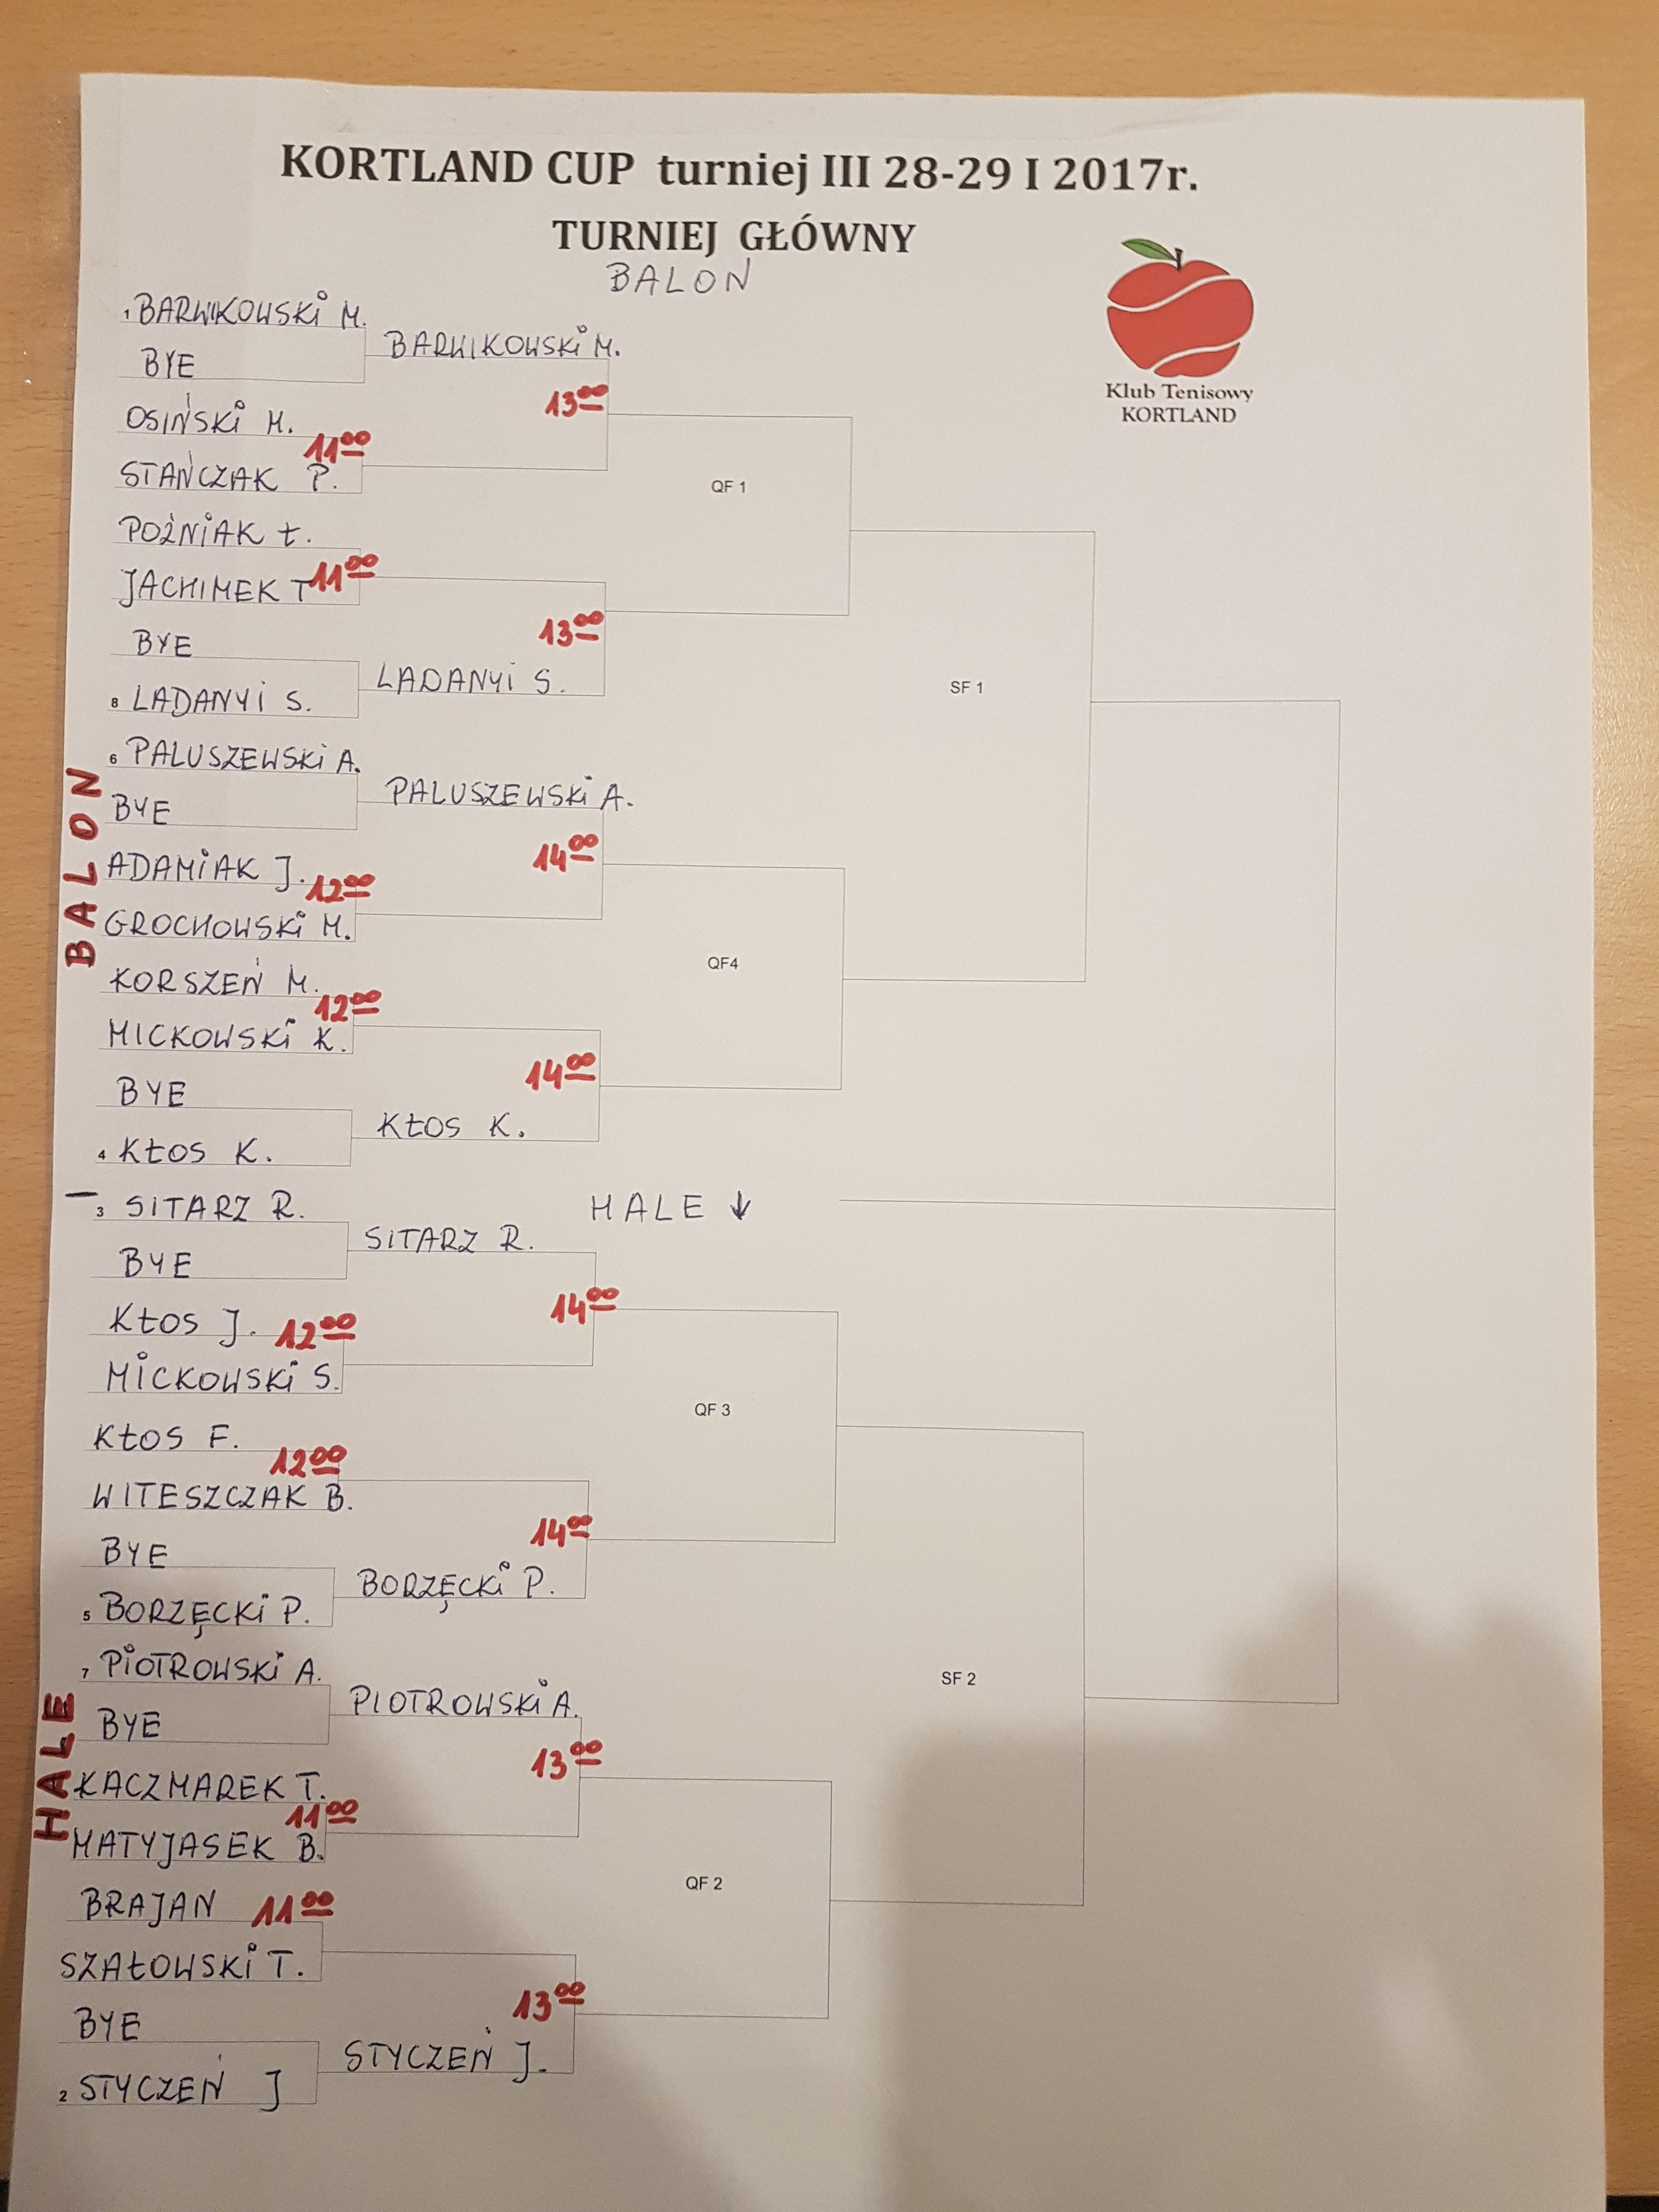 KORTLAND CUP turniej III 28-29 I 2017r.
TURNIEJ GŁÓWNY
BALON
Klub Tenisowy
KORTLAND
1 BARWIKOWSKI M.
BARWIKOWSKI M.
BYE
13⁰⁰
OSIŃSKI M.
11⁰⁰
STAŃCZAK P.
QF 1
POŹNIAK Ł.
11⁰⁰
JACHIMEK T
13⁰⁰
BYE
LADANYI S.
8 LADANYI S.
SF 1
BALON
6 PALUSZEWSKI A.
PALUSZEWSKI A.
BYE
14⁰⁰
ADAMIAK J.
12⁰⁰
GROCHOWSKI M.
QF4
KORSZEŃ M.
12⁰⁰
MICKOWSKI K.
14⁰⁰
BYE
KŁOS K.
4 KŁOS K.
3 SITARZ R.
HALE ↓
SITARZ R.
BYE
14⁰⁰
KŁOS J.
12⁰⁰
MICKOWSKI S.
QF 3
KŁOS F.
12⁰⁰
WITESZCZAK B.
14⁰⁰
BYE
BORZĘCKI P.
5 BORZĘCKI P.
SF 2
HALE
7 PIOTROWSKI A.
PIOTROWSKI A.
BYE
13⁰⁰
KACZMAREK T.
11⁰⁰
MATYJASEK B.
QF 2
BRAJAN
11⁰⁰
SZAŁOWSKI T.
13⁰⁰
BYE
STYCZEŃ J.
2 STYCZEŃ J